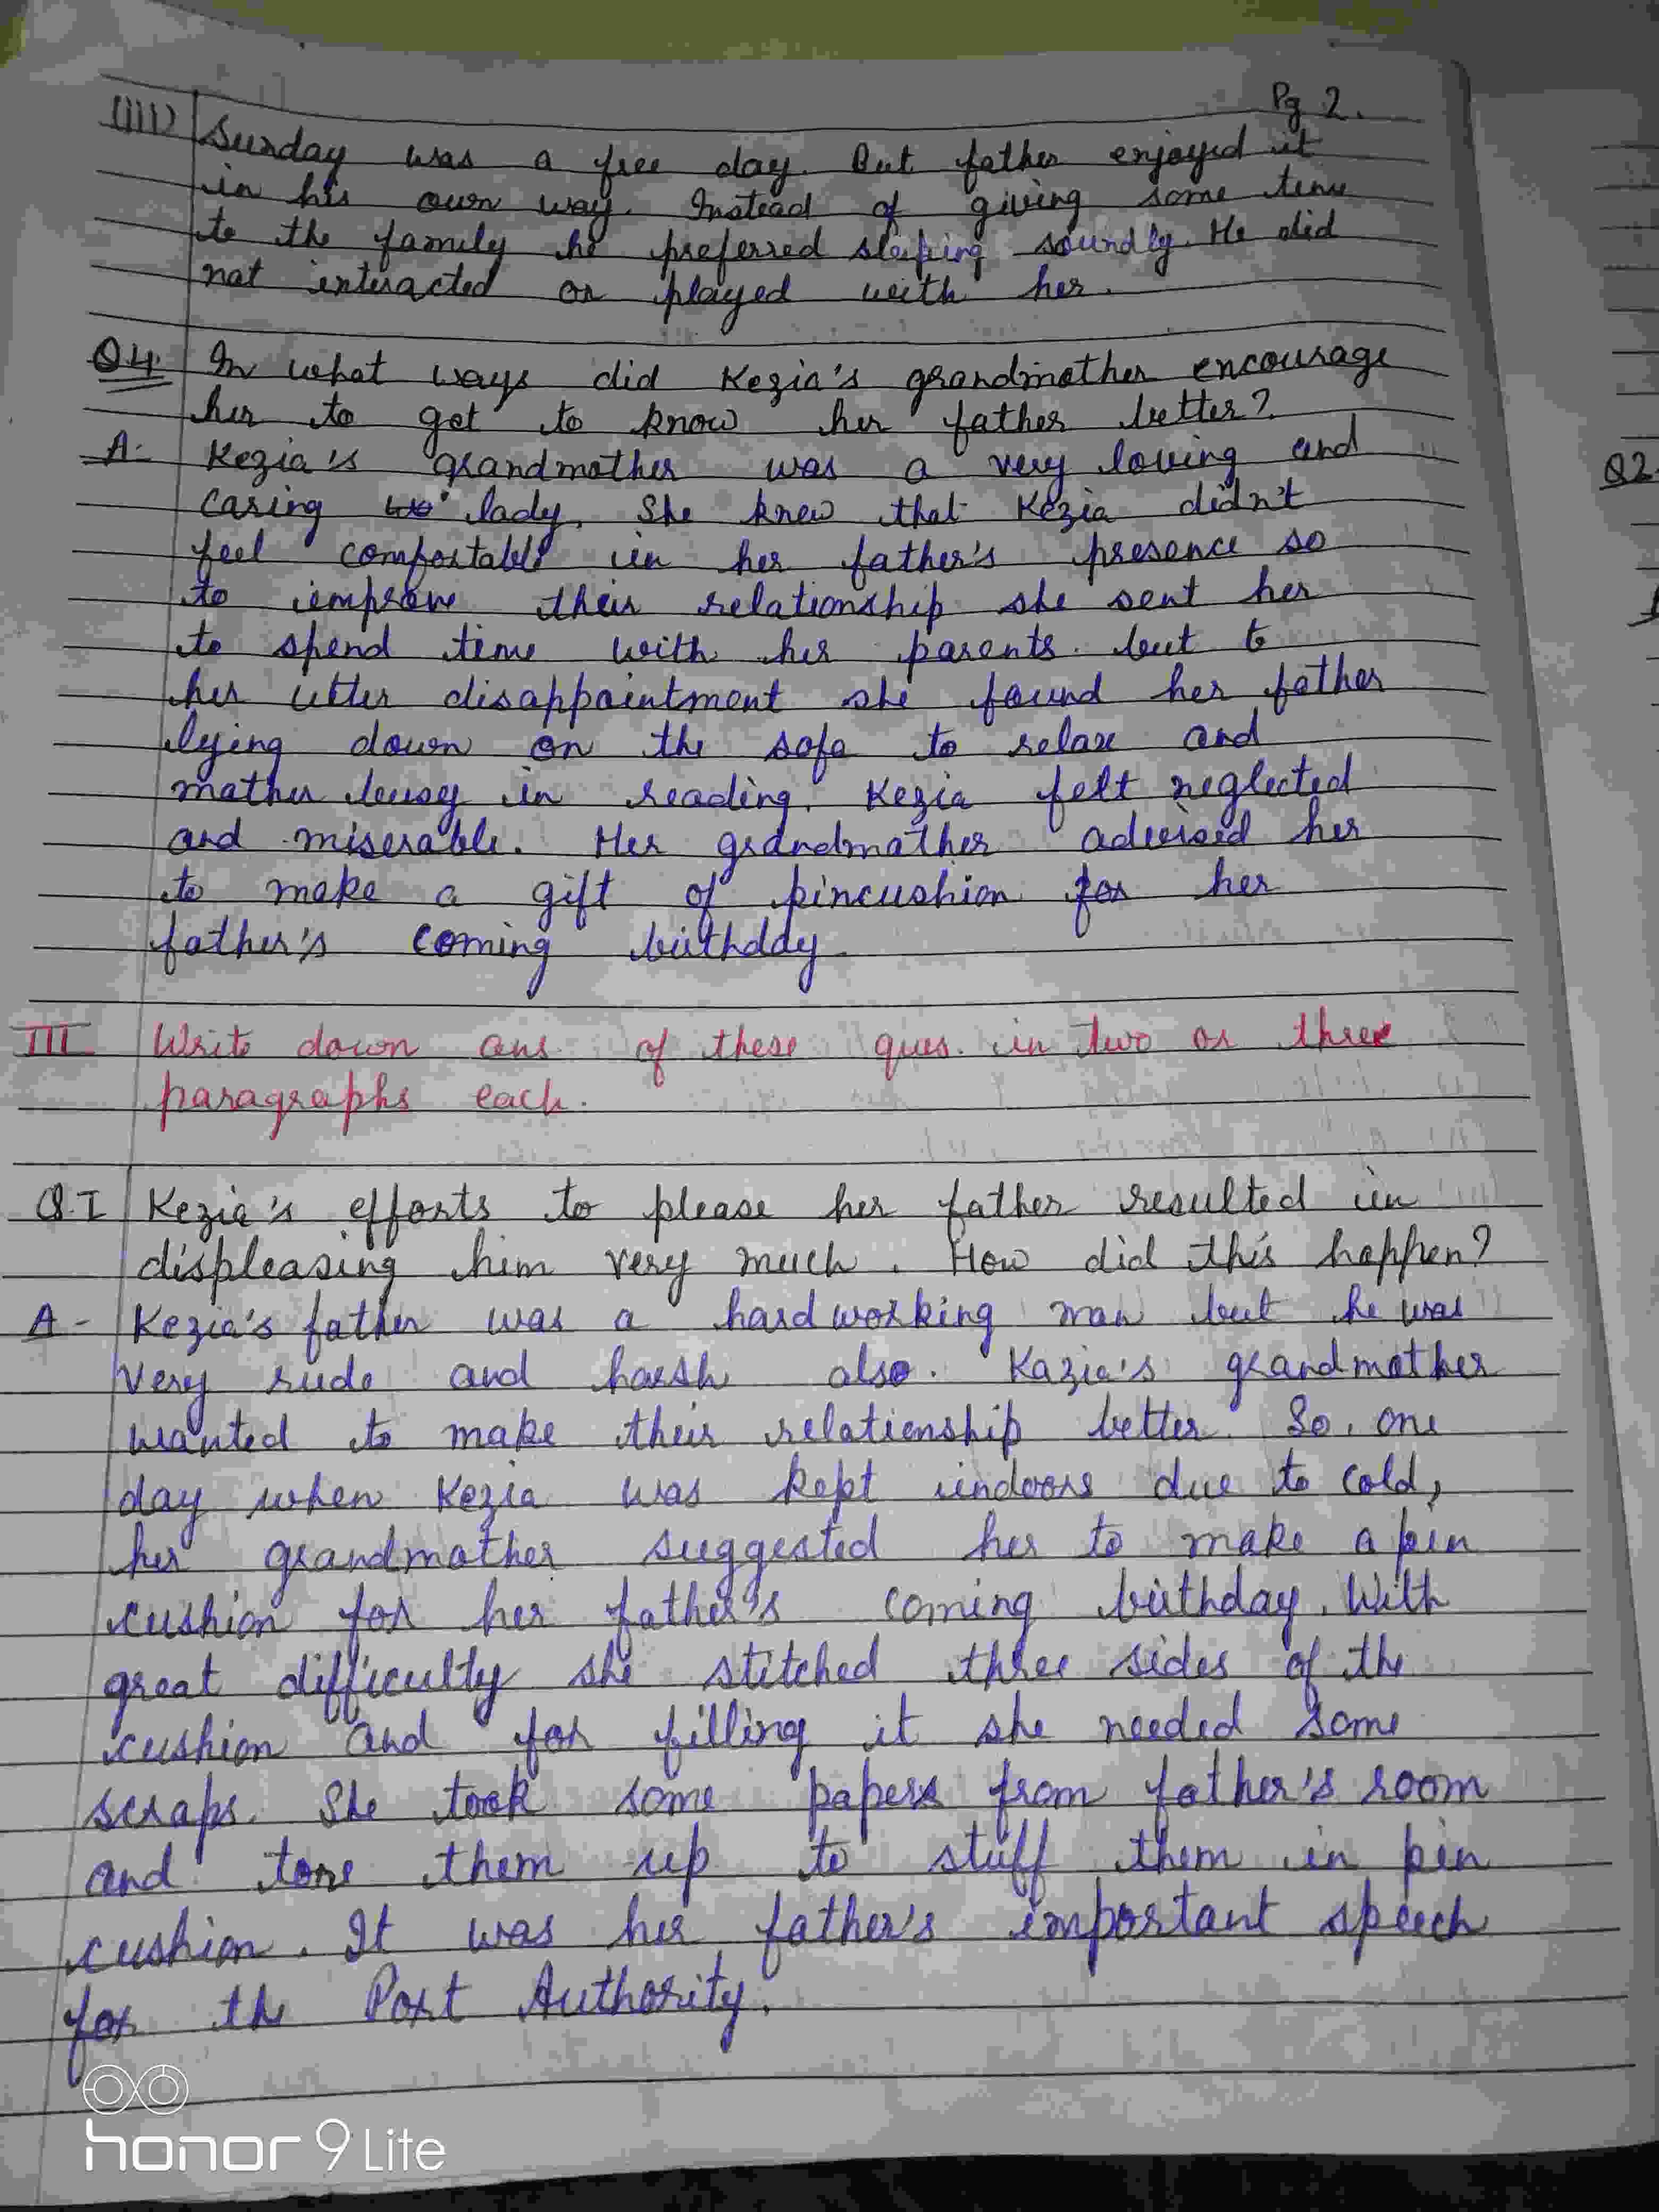 Pg 2.
(iii) Sunday was a free day. But father enjoyed it
in his own way. Instead of giving some time
to the family he preferred sleping soundly. He did
not interacted or played with her.
Q4. In what ways did Kezia's grandmother encourage
her to get to know her father better?
A- Kezia's grandmother was a very loving and
caring lady. She knew that Kezia didn't
feel comfortable in her father's presence so
to improve their relationship she sent her
to spend time with her parents. but to
her utter disappointment she found her father
lying down on the sofa to relax and
mother busy in reading. Kezia felt neglected
and miserable. Her grandmother adviced her
to make a gift of pincushion for her
father's coming birthday.
III Write down ans. of these ques. in two or three
paragraphs each.
Q.I Kezia's efforts to please her father resulted in
displeasing him very much. How did this happen?
A- Kezia's father was a hardworking man but he was
very rude and harsh also. Kazia's grandmother
wanted to make their relationship better. So, one
day when Kezia was kept indoors due to cold,
her grandmother suggested her to make a pin
cushion for her father's coming birthday. With
great difficulty she stitched three sides of the
cushion and for filling it she needed some
scraps. She took some papers from father's room
and tore them up to stuff them in pin
cushion. It was her father's important speech
for the Port Authority.
Q2
honor 9 Lite